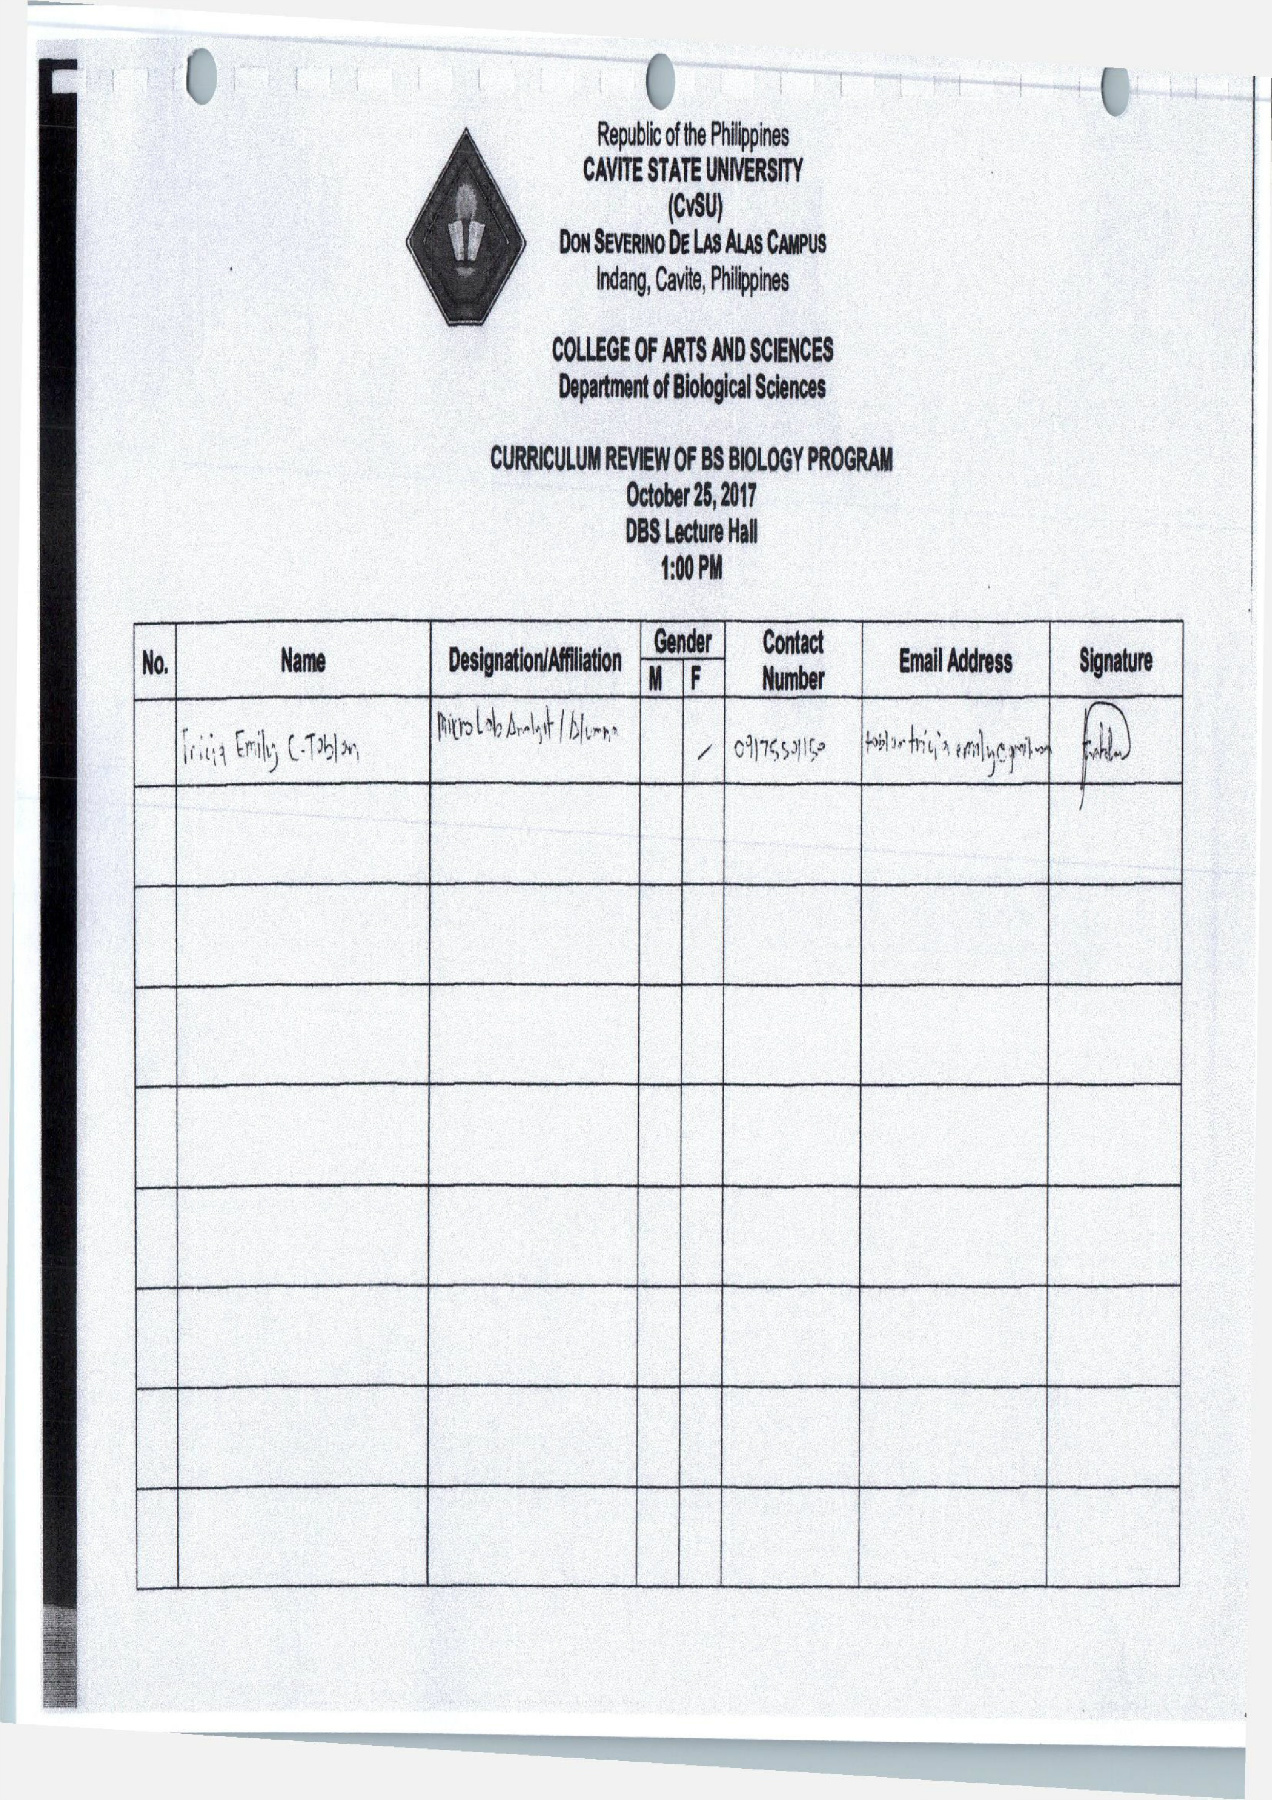 Republic of the Philippines
CAVITE STATE UNIVERSITY
(CvSU)
DON SEVERINO DE LAS ALAS CAMPUS
Indang, Cavite, Philippines
COLLEGE OF ARTS AND SCIENCES
Department of Biological Sciences
CURRICULUM REVIEW OF BS BIOLOGY PROGRAM
October 25, 2017
DBS Lecture Hall
1:00 PM
No. Name Designation/Affiliation Gender M F Contact Number Email Address Signature
Tricia Emily C. Toblan Micro Lab Analyst / Alumna /